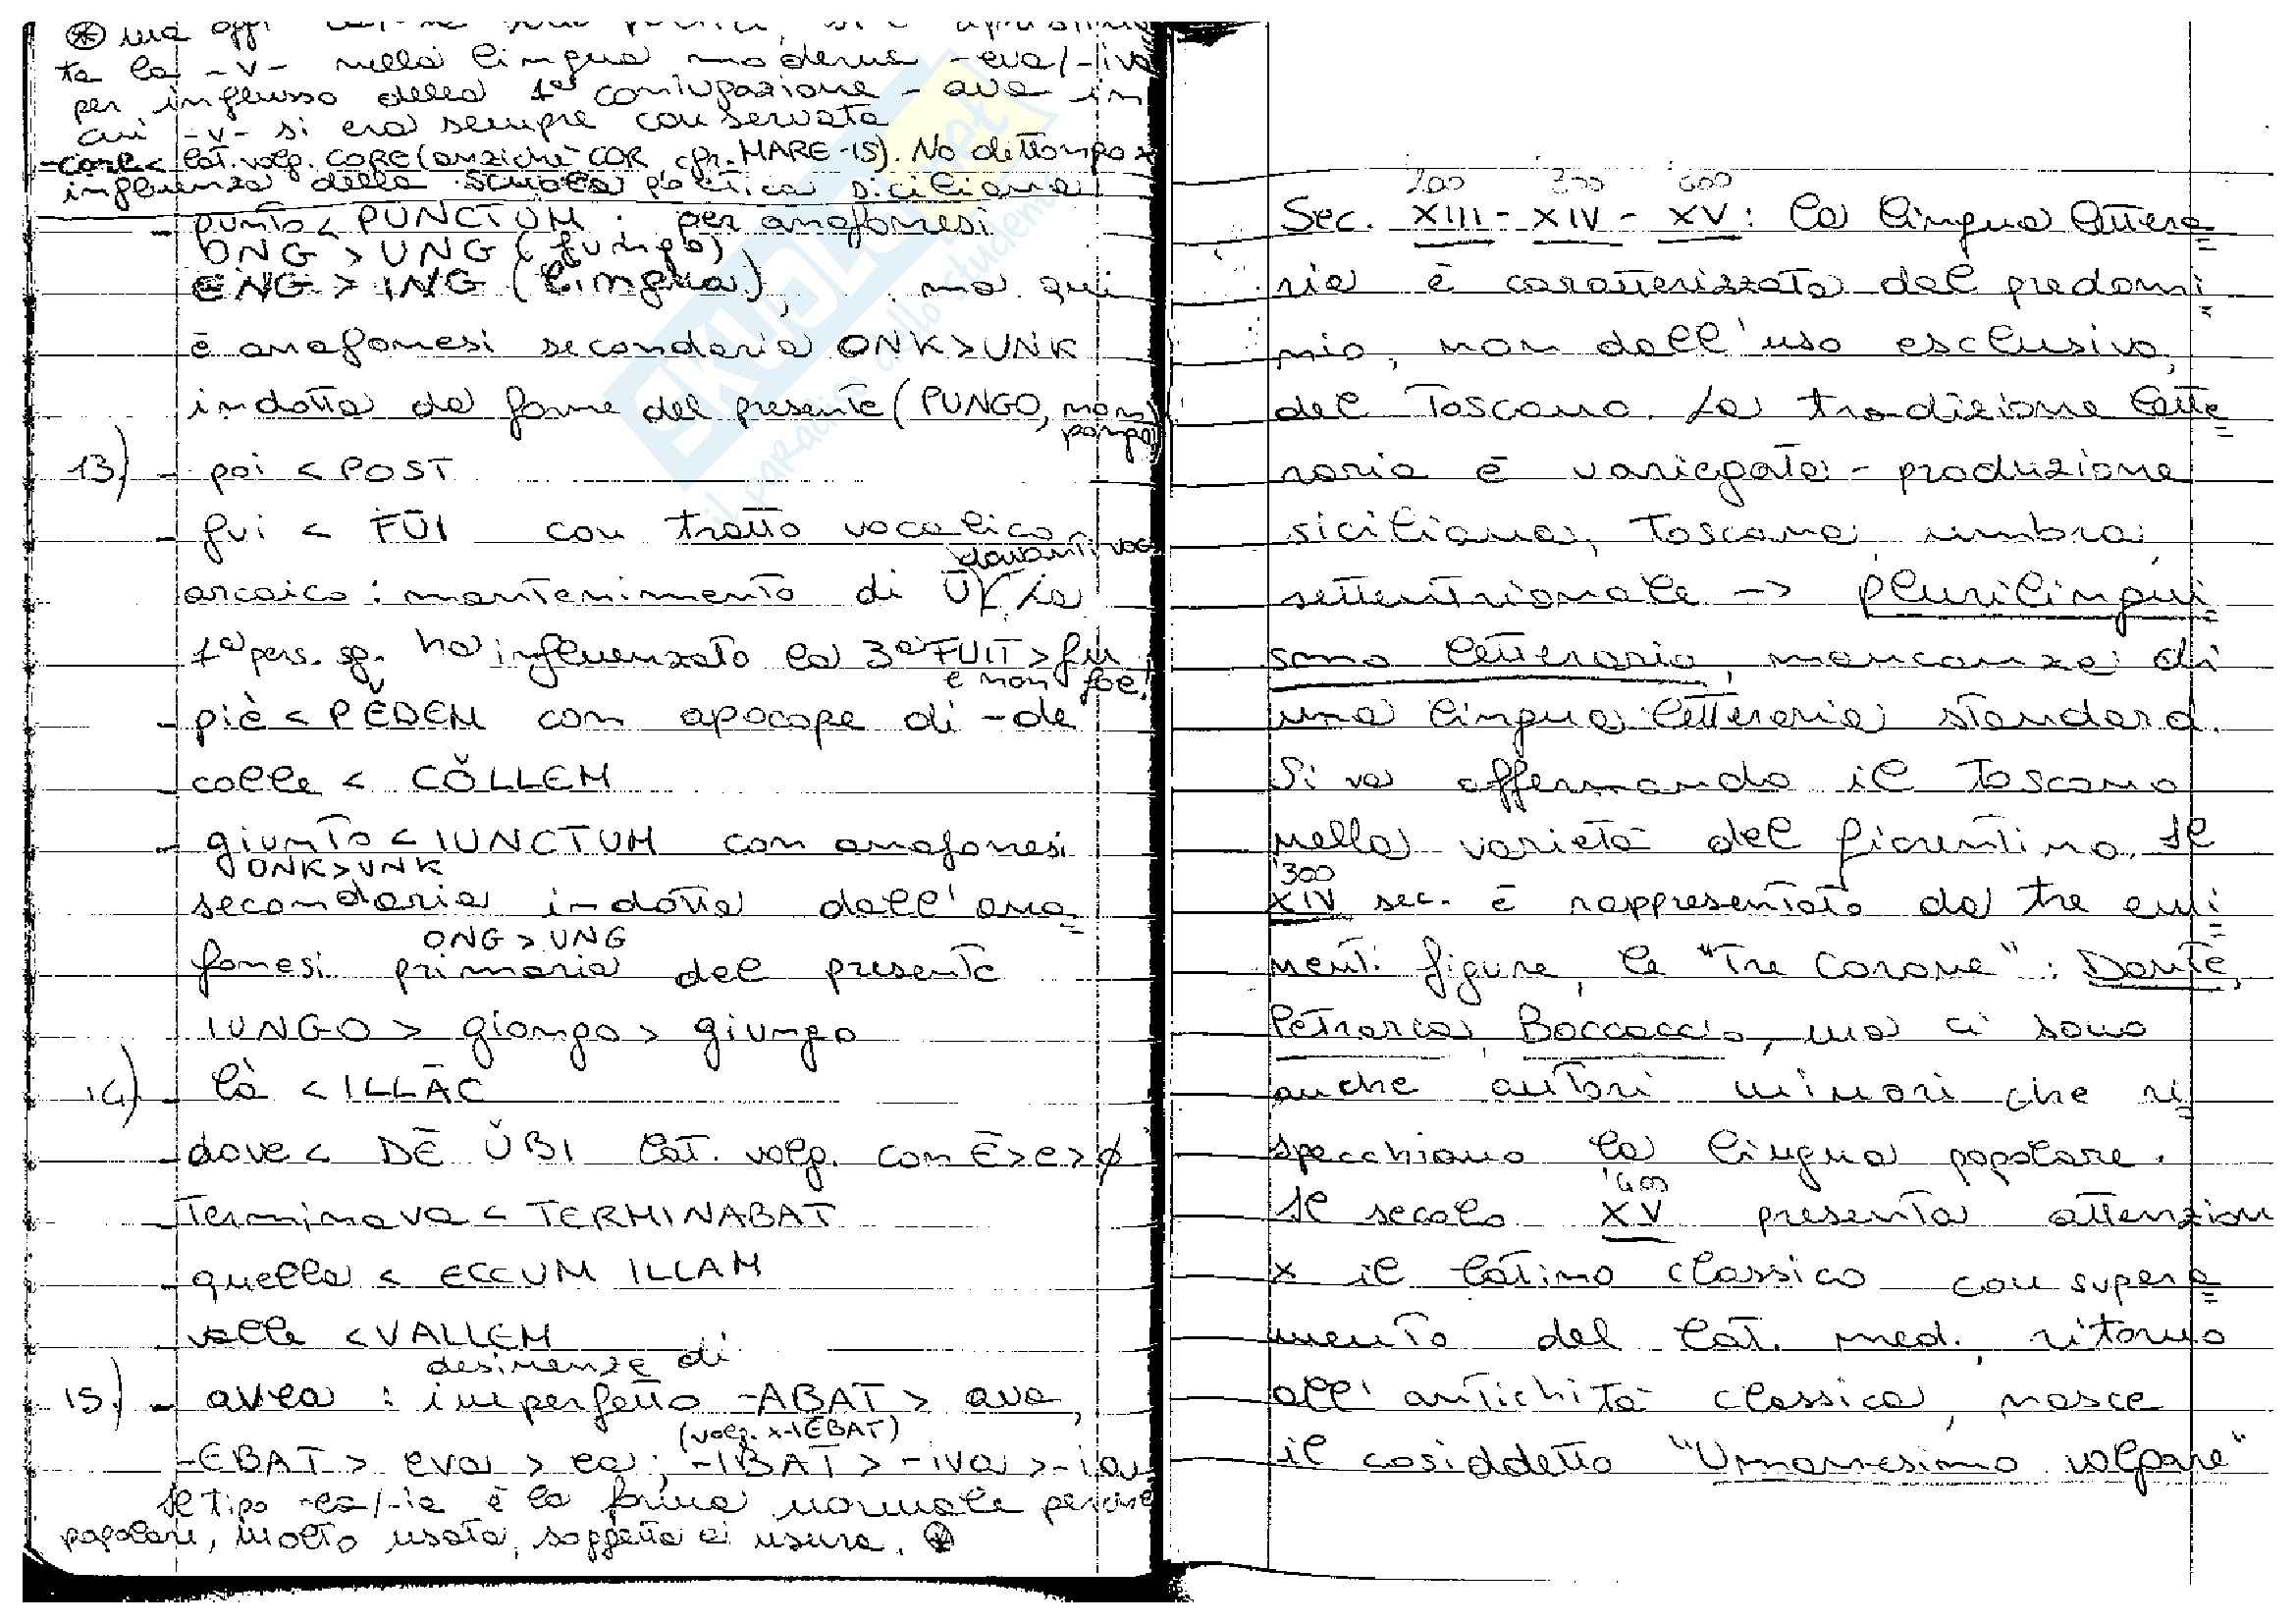 ⊛ ma oggi
ta la -v- nella lingua moderna -eva/-iva
per influsso della 1ª coniugazione -ava in
cui -v- si era sempre conservata
-core < lat. volg. CORE (anziché COR cfr. MARE-IS). No dittongo x
influenza della scuola poetica siciliana
- punto < PUNCTUM : per anafonesi
ONG > UNG (fungo)
ENG > ING (lingua), ma qui
è anafonesi secondaria ONK > UNK
indotta da forme del presente (PUNGO, non
pongo)
13) - poi < POST
- fui < FŪI con tratto vocalico
arcaico: mantenimento di Ū davanti voc. La
1ª pers. sg. ha influenzato la 3ª FUIT > fu
e non foe!
- piè < PĔDEM con apocope di -de
- colle < CŎLLEM
- giunto < IUNCTUM con anafonesi
ONK > UNK
secondaria indotta dall'ana
ONG > UNG
fonesi primaria del presente
IUNGO > giongo > giungo
14) - là < ILLĀC
- dove < DĒ ŬBI lat. volg. con Ē > e > ø
- Terminava < TERMINABAT
- quella < ECCUM ILLAM
- valle < VALLEM
desinenze di
15) - avea : imperfetto -ABAT > ava,
(volg. x -IEBAT)
-EBAT > eva > ea; -IBAT > -iva > -ia
Il tipo -ea/-ia è la forma normale perché
popolare, molto usata, soggetta a usura. ⊛
'200 '300 '400
Sec. XIII - XIV - XV: la lingua lettera
ria è caratterizzata dal predomi
nio, non dall'uso esclusivo,
del Toscano. La tradizione lette
raria è variegata - produzione
siciliana, Toscana, umbra,
settentrionale -> plurilingui
smo letterario, mancanza di
una lingua letteraria standard.
Si va affermando il Toscano
nella varietà del fiorentino. Il
'300
XIV sec. è rappresentato da tre emi
nenti figure, le "Tre Corone": Dante,
Petrarca, Boccaccio, ma ci sono
anche autori minori che ri
specchiano la lingua popolare.
'400
Il secolo XV presenta attenzion
x il latino classico con supera
mento del lat. med., ritorno
all'antichità classica, nasce
il cosiddetto "Umanesimo volgare"